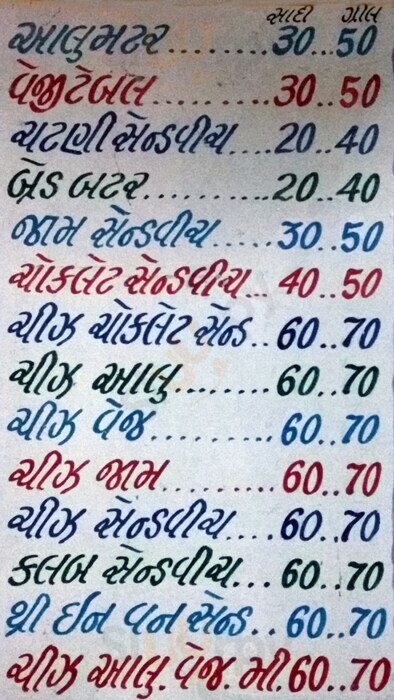 સાદી ગ્રીલ
આલુમટર........30...50
વેજીટેબલ.........30..50
ચટણી સેન્ડવીચ....20..40
બ્રેડ બટર.........20..40
જામ સેન્ડવીચ....30..50
ચોકલેટ સેન્ડવીચ... 40..50
ચીઝ ચોકલેટ સેન્ડ..60..70
ચીઝ આલુ........60..70
ચીઝ વેજ.........60..70
ચીઝ જામ.........60..70
ચીઝ સેન્ડવીચ....60..70
કલબ સેન્ડવીચ...60..70
થ્રી ઈન વન સેન્ડ..60..70
ચીઝ આલુ.વેજ.મી.60..70